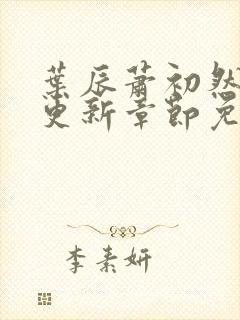 葉辰蕭初然
更新章節免
李素妍